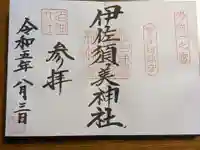 伊佐須美神社
参拝
令和五年八月三日